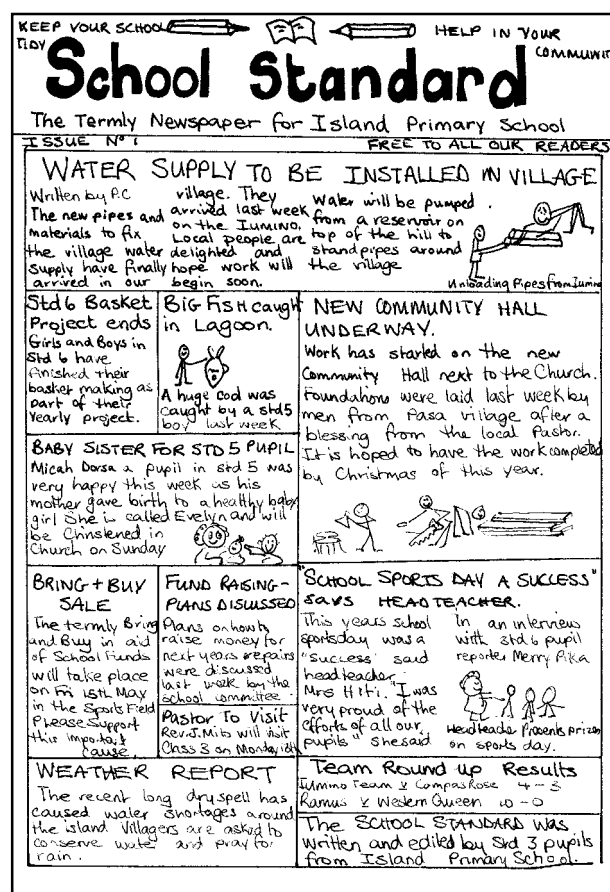 KEEP YOUR SCHOOL
TIDY
HELP IN YOUR
COMMUNITY
School Standard
The Termly Newspaper for Island Primary School
ISSUE Nº 1
FREE TO ALL OUR READERS
WATER SUPPLY TO BE INSTALLED IN VILLAGE
Written by P.C
The new pipes and
materials to fix
the village water
supply have finally
arrived in our
village. They
arrived last week
on the IUMINO.
Local people are
delighted and
hope work will
begin soon.
Water will be pumped
from a reservoir on
top of the hill to
standpipes around
the village
Unloading Pipes from Iumino
Std 6 Basket
Project ends
Girls and Boys in
Std 6 have
finished their
basket making as
part of their
Yearly project.
BIG FISH caught
in Lagoon.
A huge cod was
caught by a std 5
boy last week
NEW COMMUNITY HALL
UNDERWAY.
Work has started on the new
Community Hall next to the Church.
Foundations were laid last week by
men from Pasa village after a
blessing from the local Pastor.
It is hoped to have the work completed
by Christmas of this year.
BABY SISTER FOR STD 5 PUPIL
Micah Dorsa a pupil in std 5 was
very happy this week as his
mother gave birth to a healthy baby
girl She is called Evelyn and will
be Christened in
Church on Sunday
BRING + BUY
SALE
The termly Bring
and Buy in aid
of School Funds
will take place
on Fri 15th May
in the Sports Field
Please Support
this important
cause
FUND RAISING-
PLANS DISUSSED
Plans on how to
raise money for
next years repairs
were discussed
last week by the
school committee.
Pastor To Visit
Rev. J. Mito will visit
Class 3 on Monday 18th
"SCHOOL SPORTS DAY A SUCCESS"
says HEADTEACHER.
This years school
sportsday was a
"success" said
headteacher
Mrs Hiti. I was
very proud of the
efforts of all our
pupils" she said
In an interview
with std 6 pupil
reporter Merry Pika
Headteacher Presents prizes
on sports day.
WEATHER REPORT
The recent long dry spell has
caused water shortages around
the island. Villagers are asked to
conserve water and pray for
rain.
Team Round up Results
Iumino Team v Compas Rose 4-3
Ramus v Western Queen 10-0
The SCHOOL STANDARD was
written and edited by Std 3 pupils
from Island Primary School.